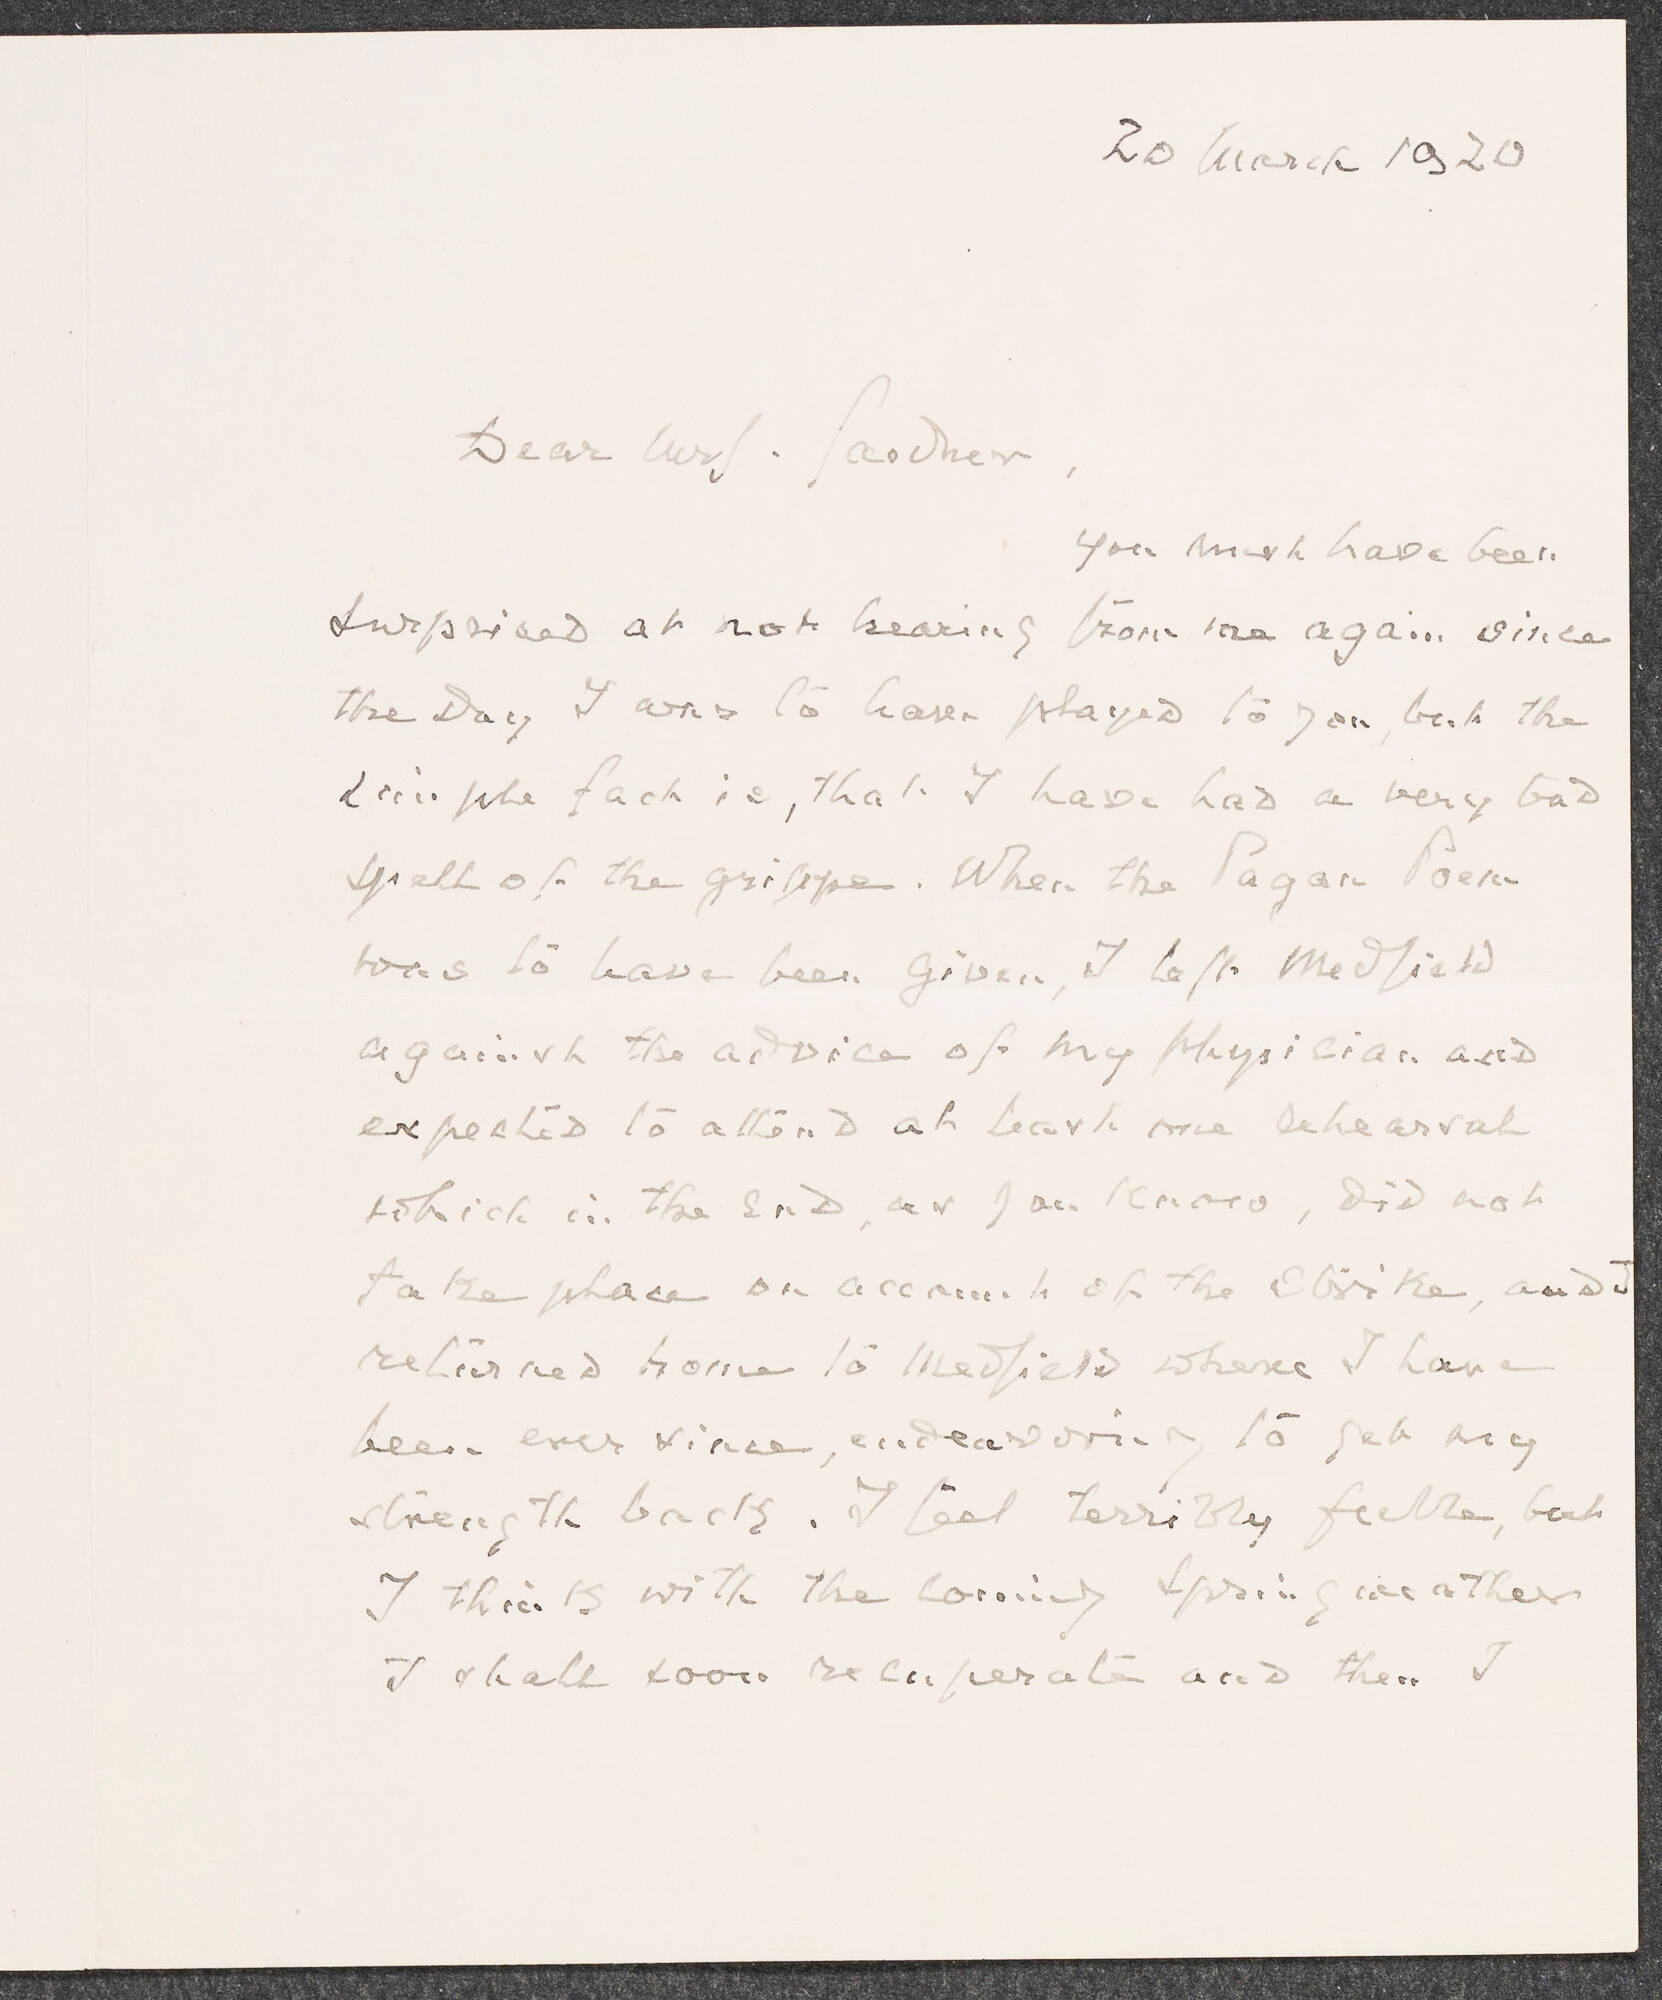 20 March 1920
Dear Mrs. Gardner,
you must have been
surprised at not hearing from me again since
the day I was to have played to you, but the
simple fact is, that I have had a very bad
spell of the grippe. When the Pagan Poem
was to have been given, I left Medfield
against the advice of my physician and
expected to attend at least one rehearsal
which in the end, as you know, did not
take place on account of the strike, and I
returned home to Medfield where I have
been ever since, endeavoring to get my
strength back. I feel terribly feeble, but
I think with the coming Spring weather
I shall soon recuperate and then I